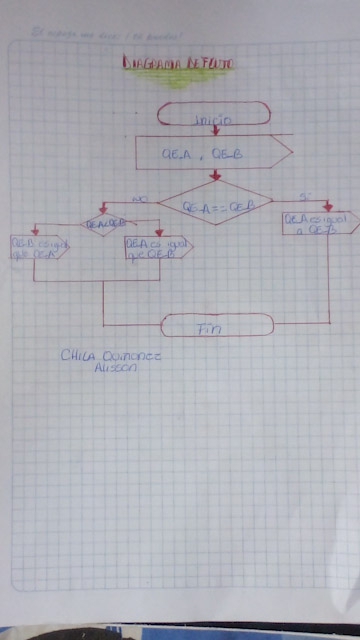 DIAGRAMA DE FLUJO
Inicio
QE_A , QE_B
NO
QE_A == QE_B
SI
QE_A es igual
a QE_B
QE_B es igual
que QE_A
QE_A es igual
que QE_B
Fin
CHILA Quiñonez
Alisson